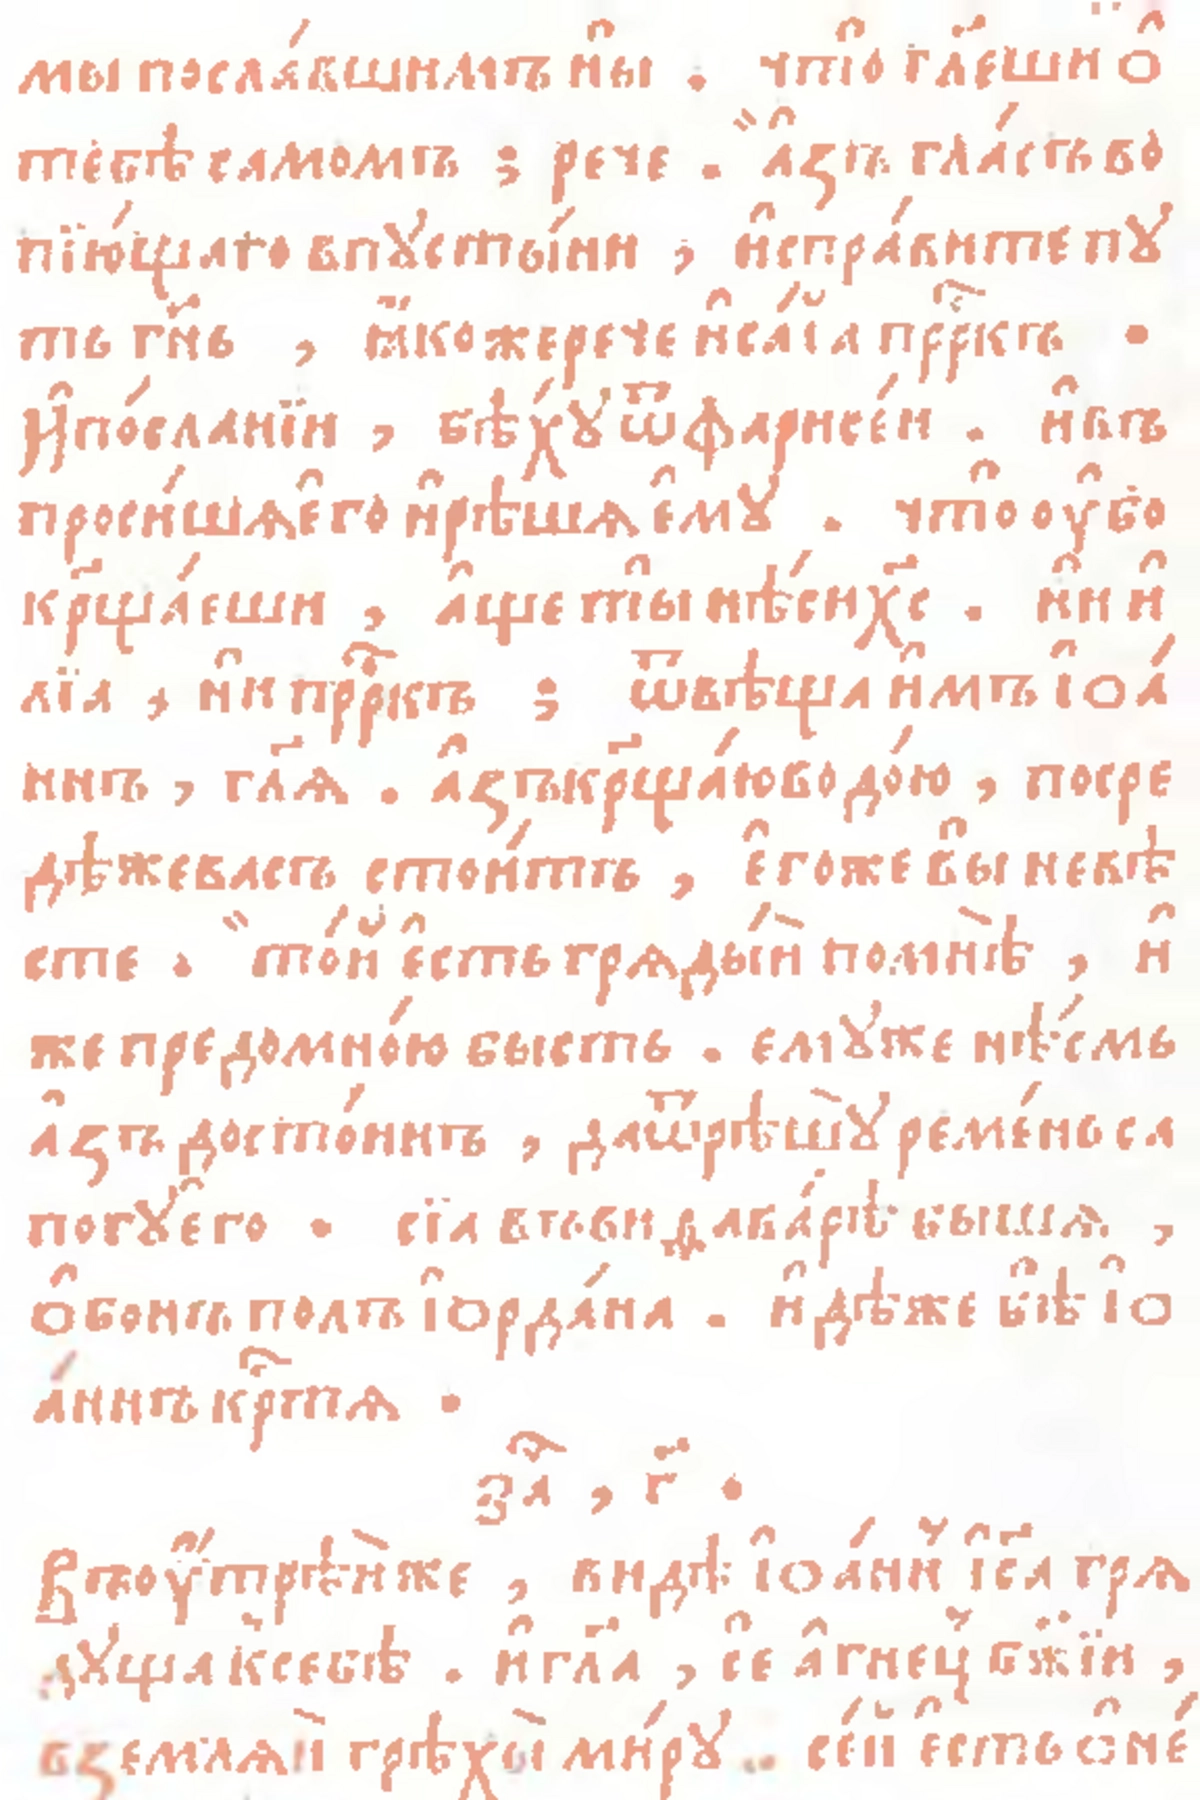 мы посла́вшимъ ны̑ . что̑ гл҃еши ѻ҆
тебѣ самомъ ; рече . а҆зъ гла́съ во
пїю́щаго впꙋсты́ни , и҆спра́вите пꙋ
ть гн҃ь , ꙗ҆́коже рече и҆са́їа прⷪ҇ркъ .
И҆ по́сланїи , бѣ́хꙋ ѿ фарисе́и . и҆ въ
проси́шѧ е҆го и҆ рѣшѧ е҆мꙋ . что̑ оу҆бо
крⷭ҇ща́еши , а҆ще ты̑ нѣ́си хⷭ҇с . н̑и и҆
лїа , н̑и прⷪ҇ркъ ; ѿвѣща и҆мъ і҆ѻа́
ннъ , гл҃ѧ . а҆зъ крⷭ҇ща́ю водо́ю , посре
дѣ же васъ стои́тъ , е҆гоже вы̑ невѣ
сте . то́й е҆сть грѧды́и помнѣ̀ , и҆
же предомно́ю бысть . емꙋже нѣ́смь
а҆зъ досто́инъ , да ѿрѣшꙋ̀ реме́нь са
погꙋ е҆го . сїа въ виѳава́рѣ бышѧ ,
ѻ҆бонъ полъ і҆ѻрда́на . и҆дѣже бѣ̑ і҆ѻ
а́ннъ крⷭ҇тѧ .
заⷱ҇ , г҃ .
Въ оу҆́трѣѝже , видѣ і҆ѻа́нн і҆с҃а грѧ
дꙋща ксебѣ . и҆ гл҃а , се̑ а҆гнец бж҃їи ,
вземлѧѝ грѣхы̀ ми́рꙋ .. се́й е҆сть ѻ҆не́